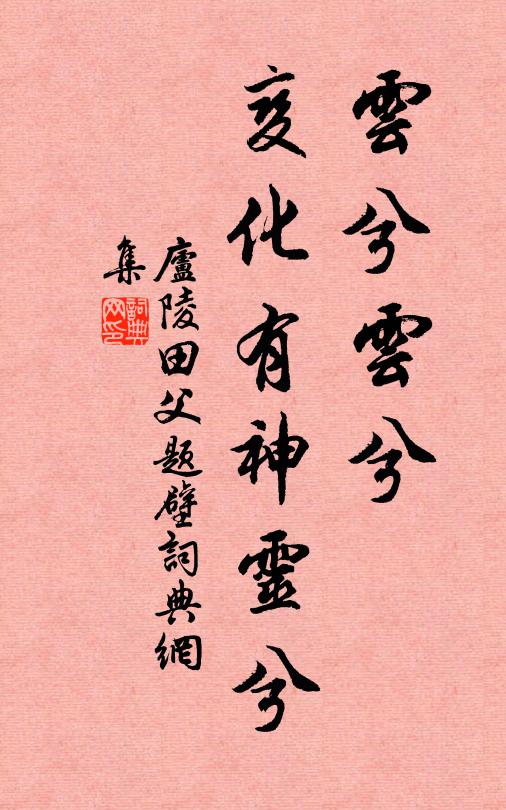 雲兮雲兮
变化有神靈兮
廬陵田父題壁詞典網
集
詞典
网印